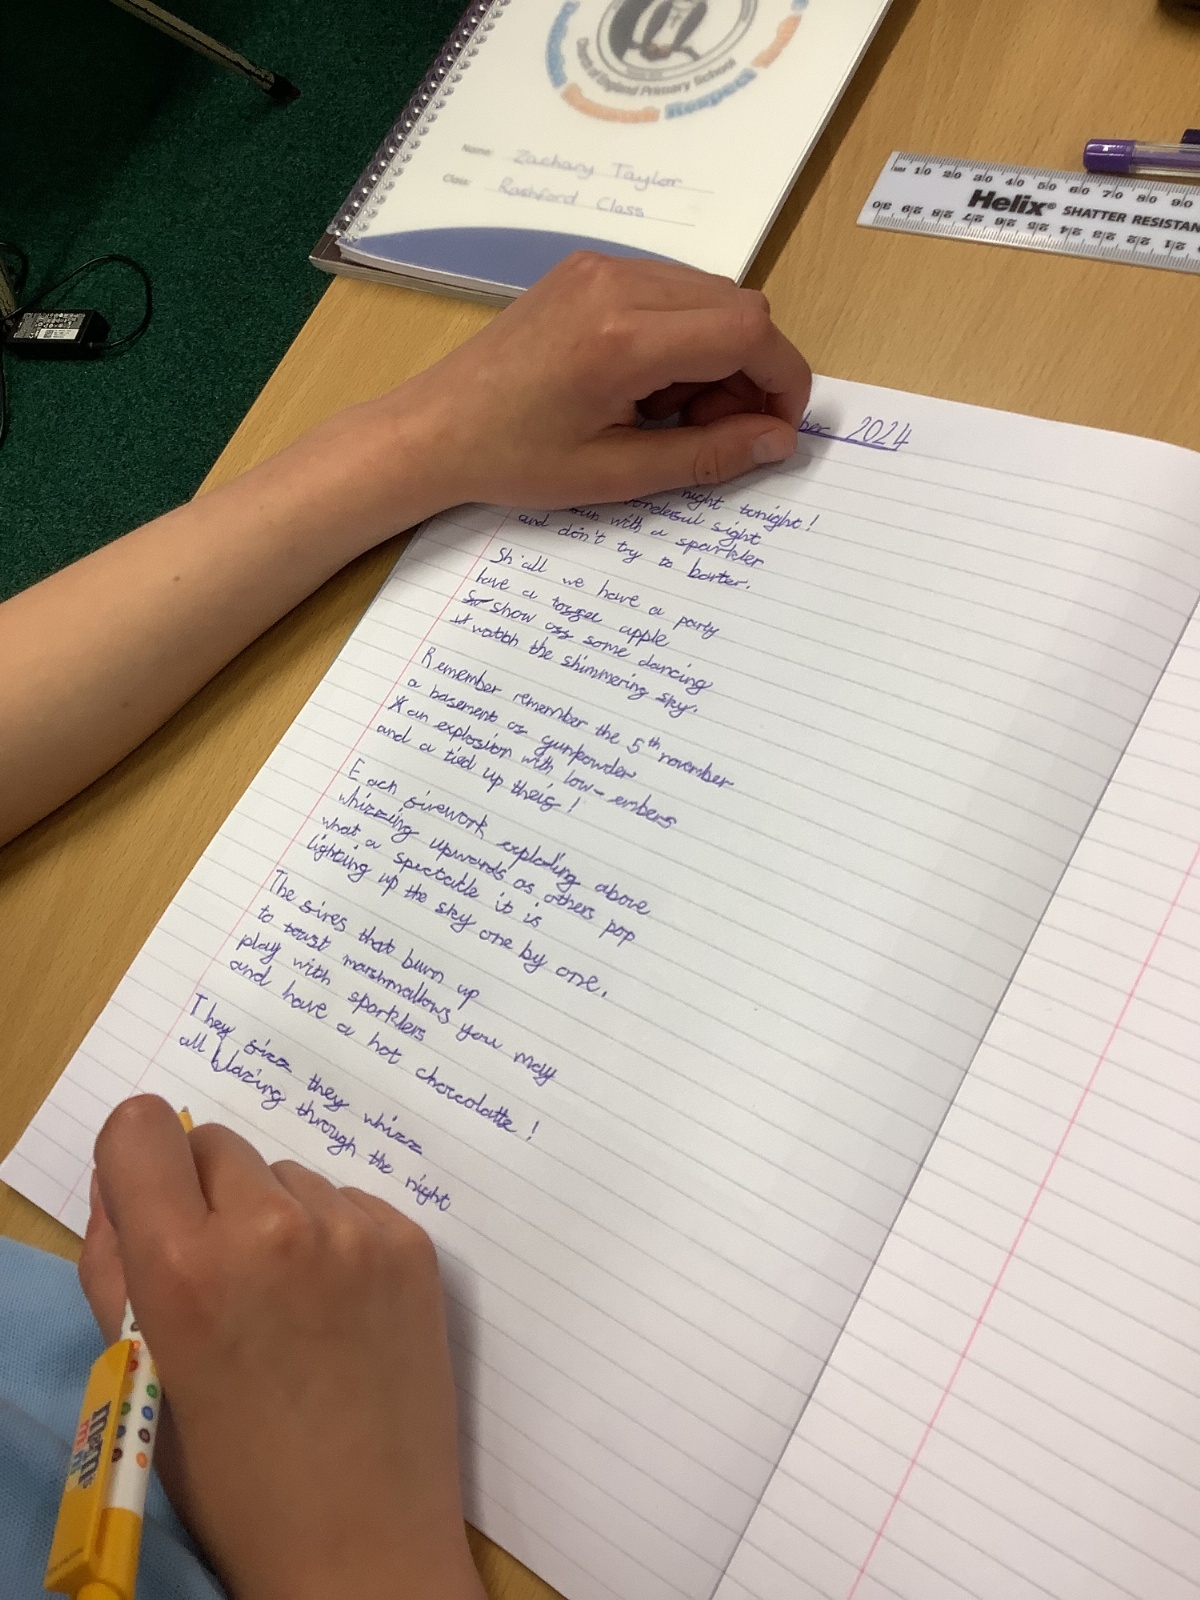 Church of England Primary School
Respect
Name: Zachary Taylor
Class: Rashford Class
mm 10 20 30 40 50 60 70 80 90
Helix® SHATTER RESISTAN
30 29 28 27 26 25 24 23 22 21
ber 2024
night tonight!
sight
with a sparkler
and don't try to barter.
Shall we have a party
have a toffee apple
So show off some dancing
watch the shimmering sky.
Remember remember the 5th november
a basement of gunpowder
an explosion with low-embers
and a tied up theif!
Each firework exploding above
whizzing upwards as others pop
what a spectacle it is
lighting up the sky one by one.
The fires that burn up
to toast marshmallows you may
play with sparklers
and have a hot choccolatte!
They fizz they whizz
all blazing through the night
m&m's
mini